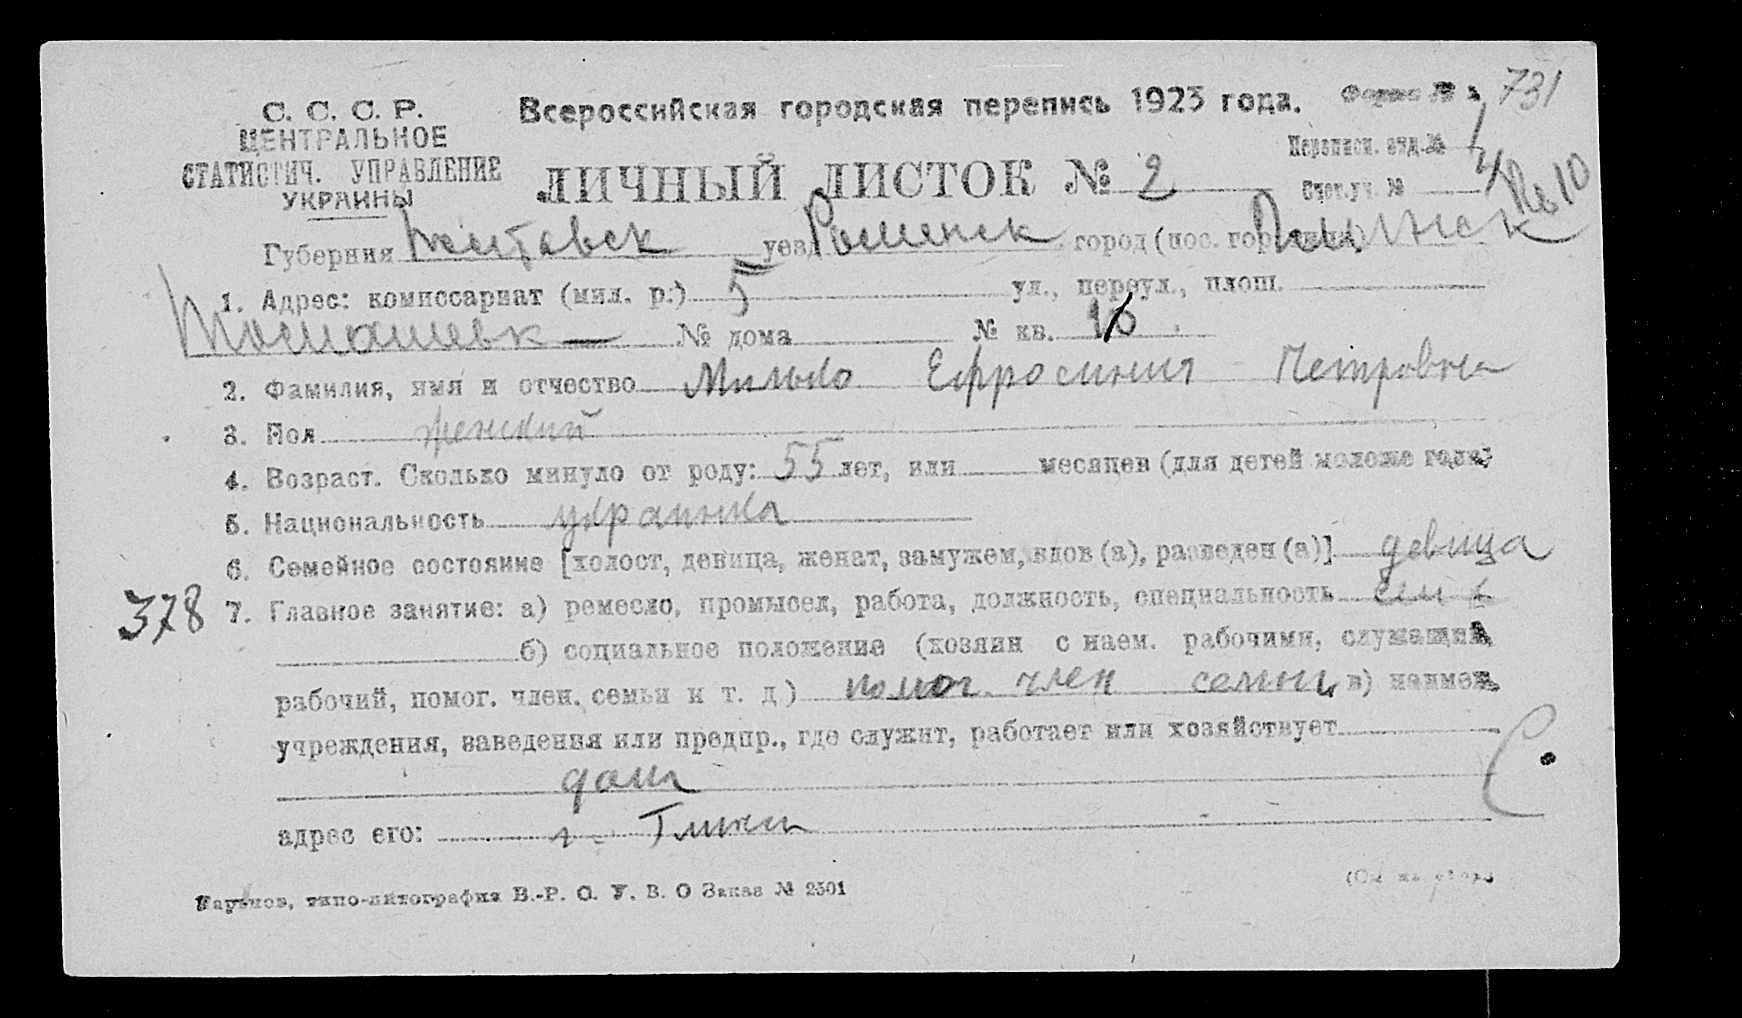 С. С. С. Р.
ЦЕНТРАЛЬНОЕ
СТАТИСТИЧ. УПРАВЛЕНИЕ
УКРАИНЫ
Всероссийская городская перепись 1923 года.
Форма № 731
Переписн. отд. № 1
ЛИЧНЫЙ ЛИСТОК № 2
Счет. уч. № № 10
Губерния Полтавск уезд Роменск город (пос. гор.
1. Адрес: комиссариат (мил. р.) 5 ул., переул., площ.
№ дома № кв.
2. Фамилия, имя и отчество Милько Ефросиния Петровна
3. Пол женский
4. Возраст. Сколько минуло от роду: 55 лет, или месяцев (для детей моложе года)
5. Национальность украинка
6. Семейное состояние [холост, девица, женат, замужем, вдов (а), разведен (а)] девица
378 7. Главное занятие: а) ремесло, промысел, работа, должность, специальность
б) социальное положение (хозяин с наем. рабочими, служащий,
рабочий, помог. член. семьи и т. д.) помог. член семьи в) наимен.
учреждения, заведения или предпр., где служит, работает или хозяйствует
дом
адрес его: Глинск
Харьков, типо-литография В.-Р. О. У. В. О Заказ № 2501